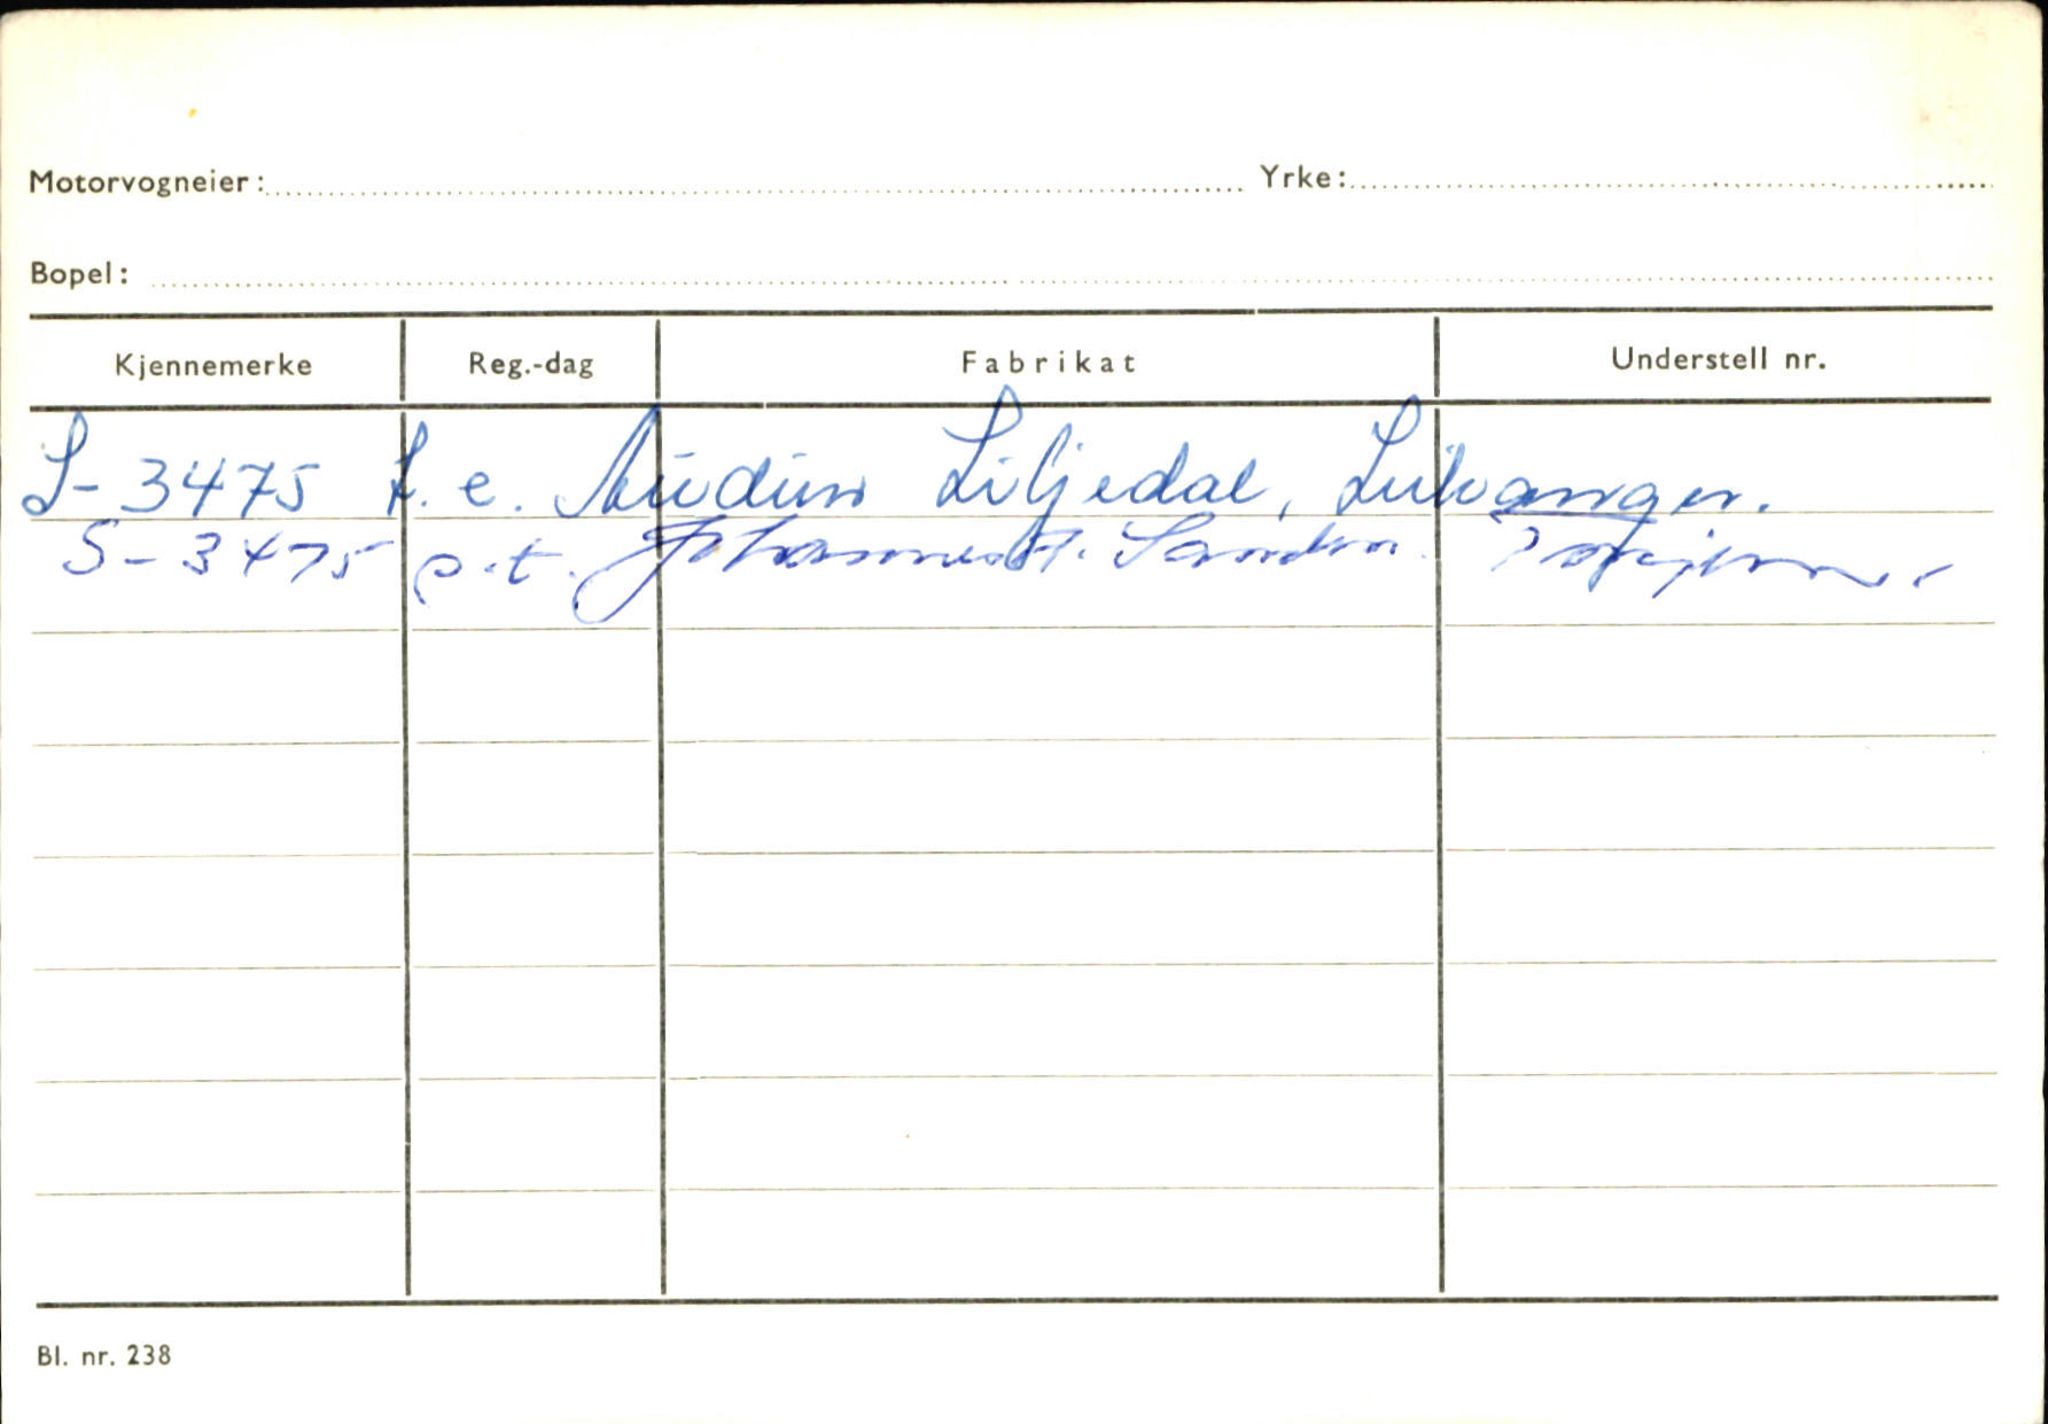 Motorvogneier: Yrke:
Bopel:
Kjennemerke Reg.-dag Fabrikat Understell nr.
S-3475 f.e. Audun Liljedal, Leikanger.
S-3475 p.t. Johannes
Bl. nr. 238